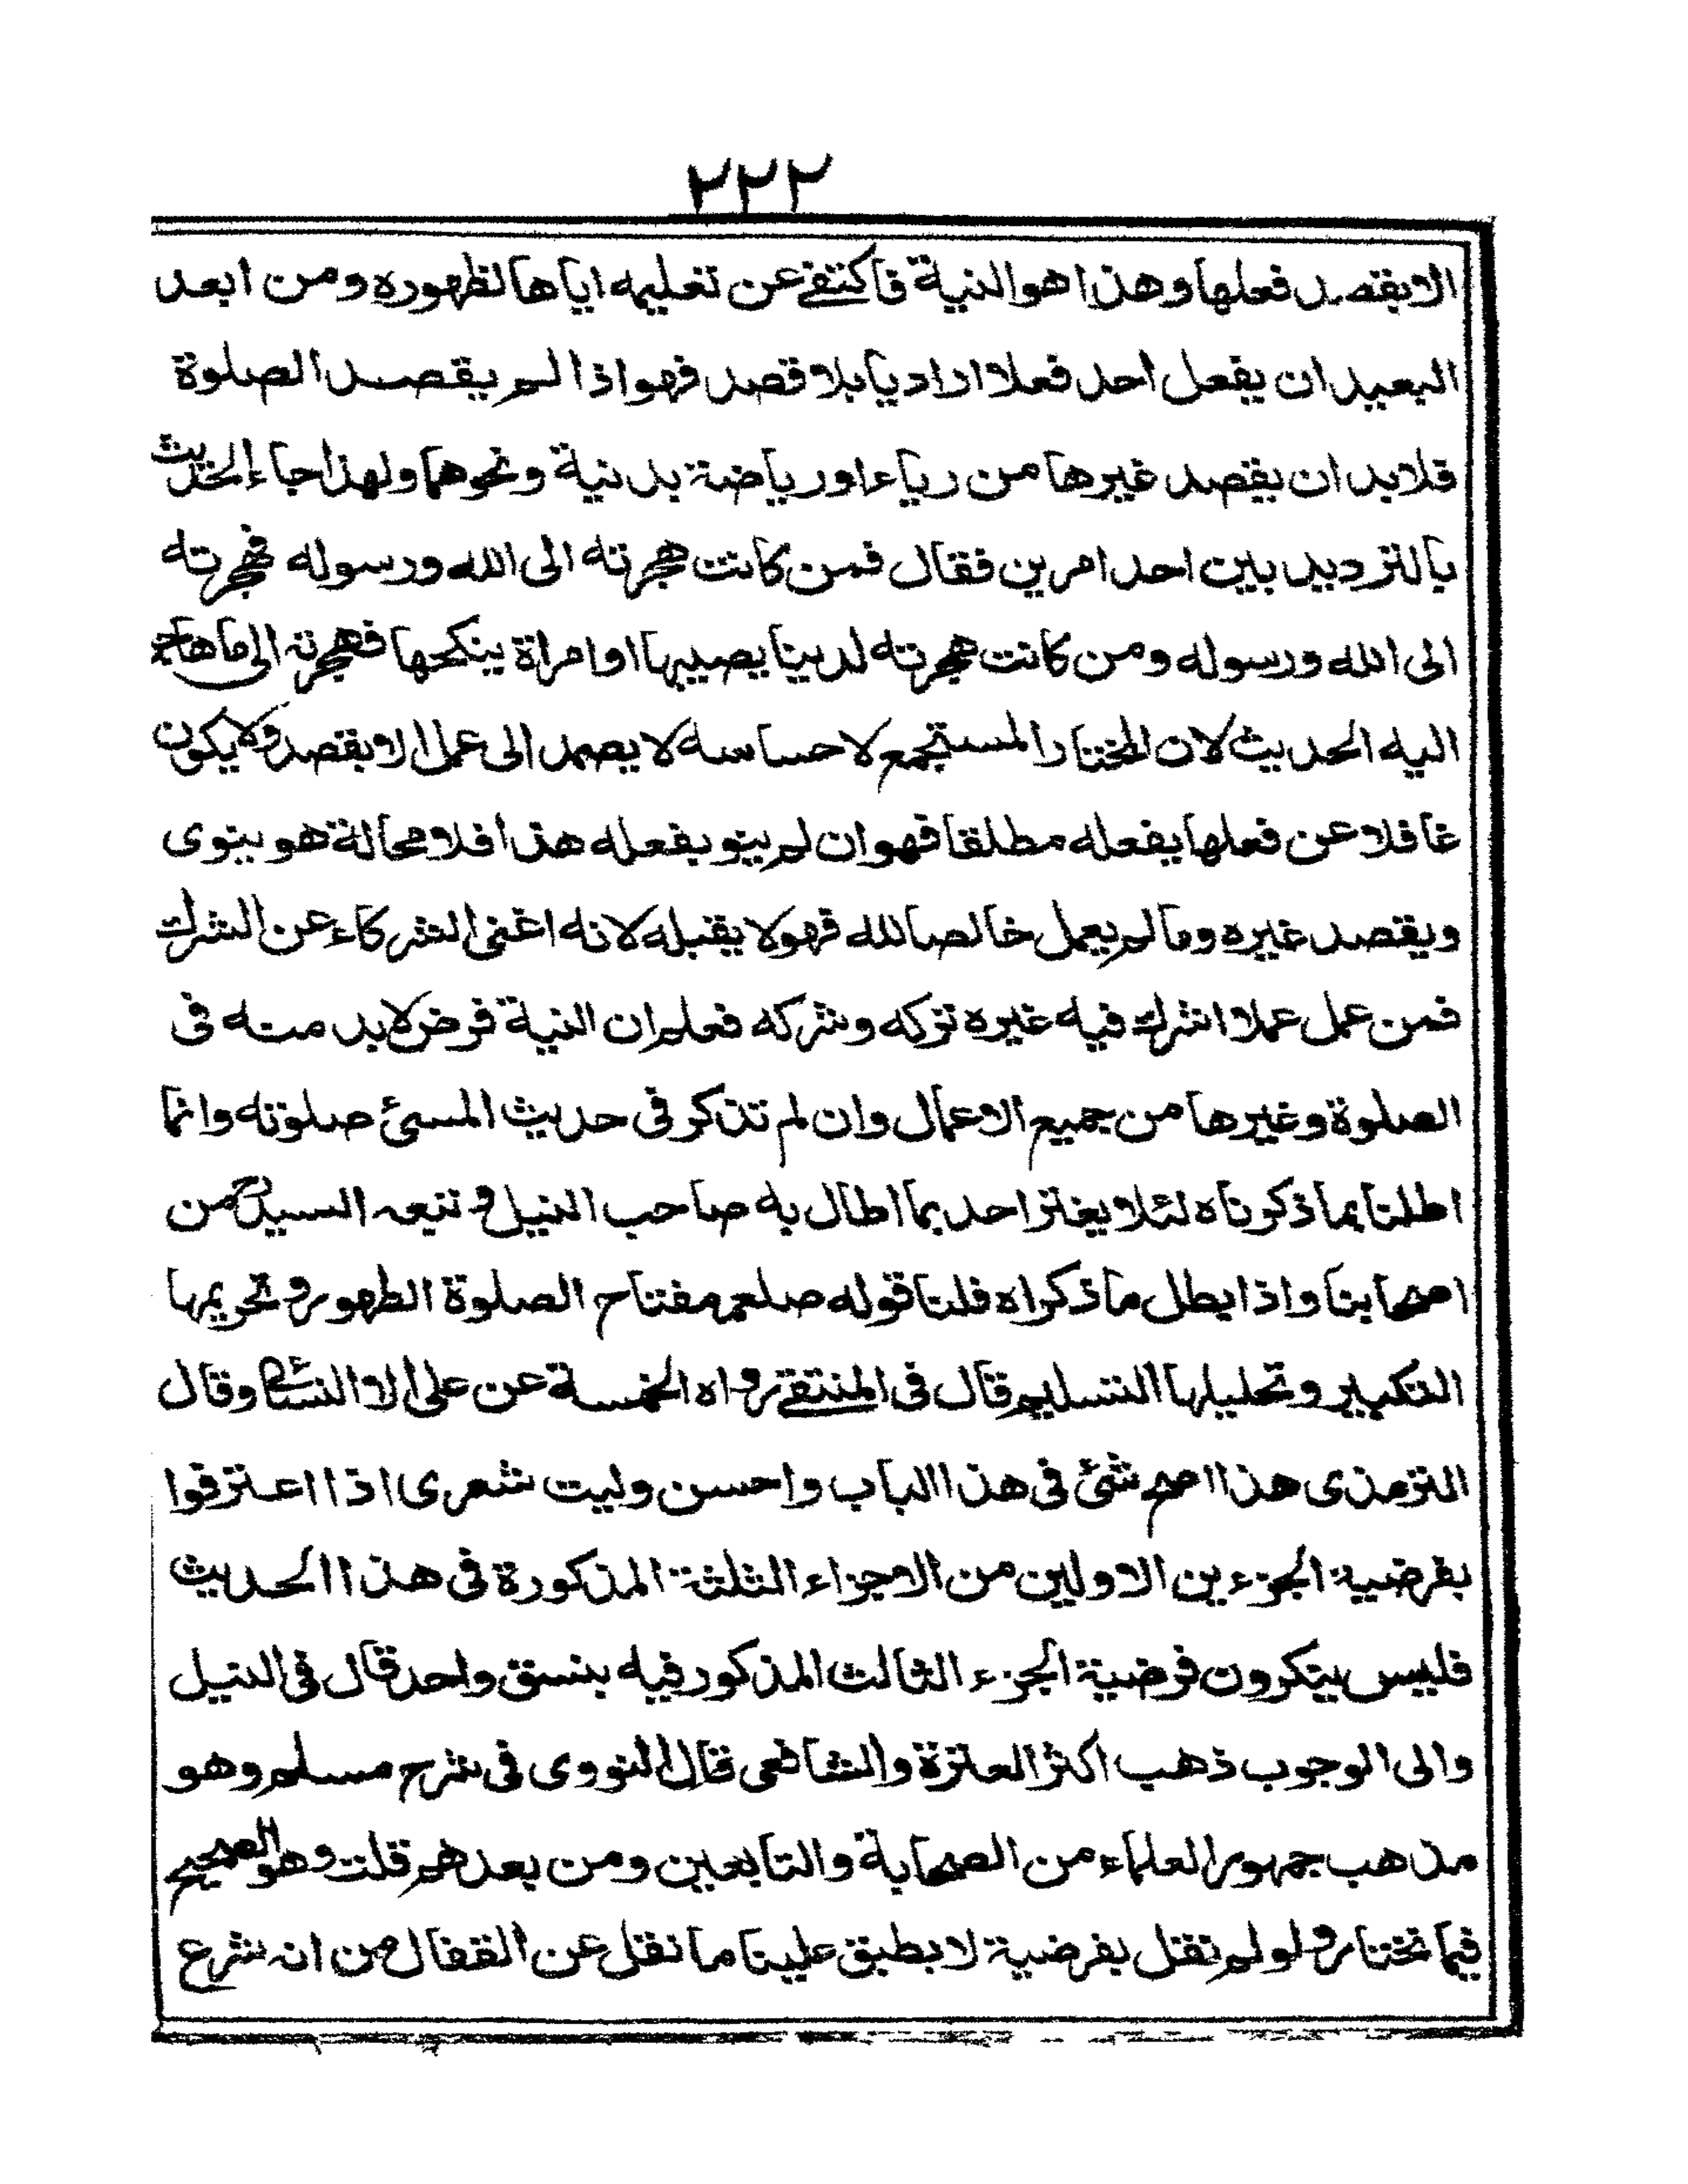 ٢٢٢
الا بقصد فعلها وهذا هو النية فاكتفے عن تعليمه اياها لظهوره ومن ابعد
البعيد ان يفعل احد فعلا اراديا بلا قصد فهو اذا لم يقصد الصلوة
فلا بد ان يقصد غيرها من رياء او رياضة بدنية ونحوهما ولهذا جاء الحديث
بالترديد بين احد امرين فقال فمن كانت هجرته الى الله ورسوله فهجرته
الى الله ورسوله ومن كانت هجرته لدينا يصيبها او امراة ينكحها فهجرته الى ما هاجر
اليه الحديث لان المختار المستجمع لاحساسه لا يصمد الى عمل الا بقصد ولا يكون
غافلا عن فعلها بفعله مطلقا فهو ان لم ينو بفعله هذا فلا محالة هو ينوى
ويقصد غيره وما لم يعمل خالصا لله فهو لا يقبله لانه اغنى الشركاء عن الشرك
فمن عمل عملا اشرك فيه غيره تركه وشركه فعلم ان النية فرض لا بد منه فى
الصلوة وغيرها من جميع الاعمال وان لم تذكر فى حديث المسئ صلوته وانما
اطلنا بما ذكرناه لئلا يغتر احد بما اطال به صاحب النيل و تبعه السيد من
اصحابنا واذا بطل ما ذكراه فلنا قوله صلعم مفتاح الصلوة الطهور و تحريمها
التكبير وتحليلها التسليم قال فى المنتقے رواه الخمسة عن على الا النسائى وقال
الترمذى هذا اصح شئ فى هذا الباب واحسن وليت شعرى اذا اعترفوا
بفرضية الجزءين الاولين من الاجزاء الثلثة المذكورة فى هذا الحديث
فليس ينكرون فرضية الجزء الثالث المذكور فيه بنسق واحد قال فى النيل
والى الوجوب ذهب اكثر العترة والشافعى قال النووى فى شرح مسلم وهو
مذهب جمهور العلماء من الصحابة والتابعين ومن بعدهم قلت وهو الصحيح
فيما نختار و لو لم نقل بفرضية لا يطبق علينا ما نقل عن القفال من انه شرع